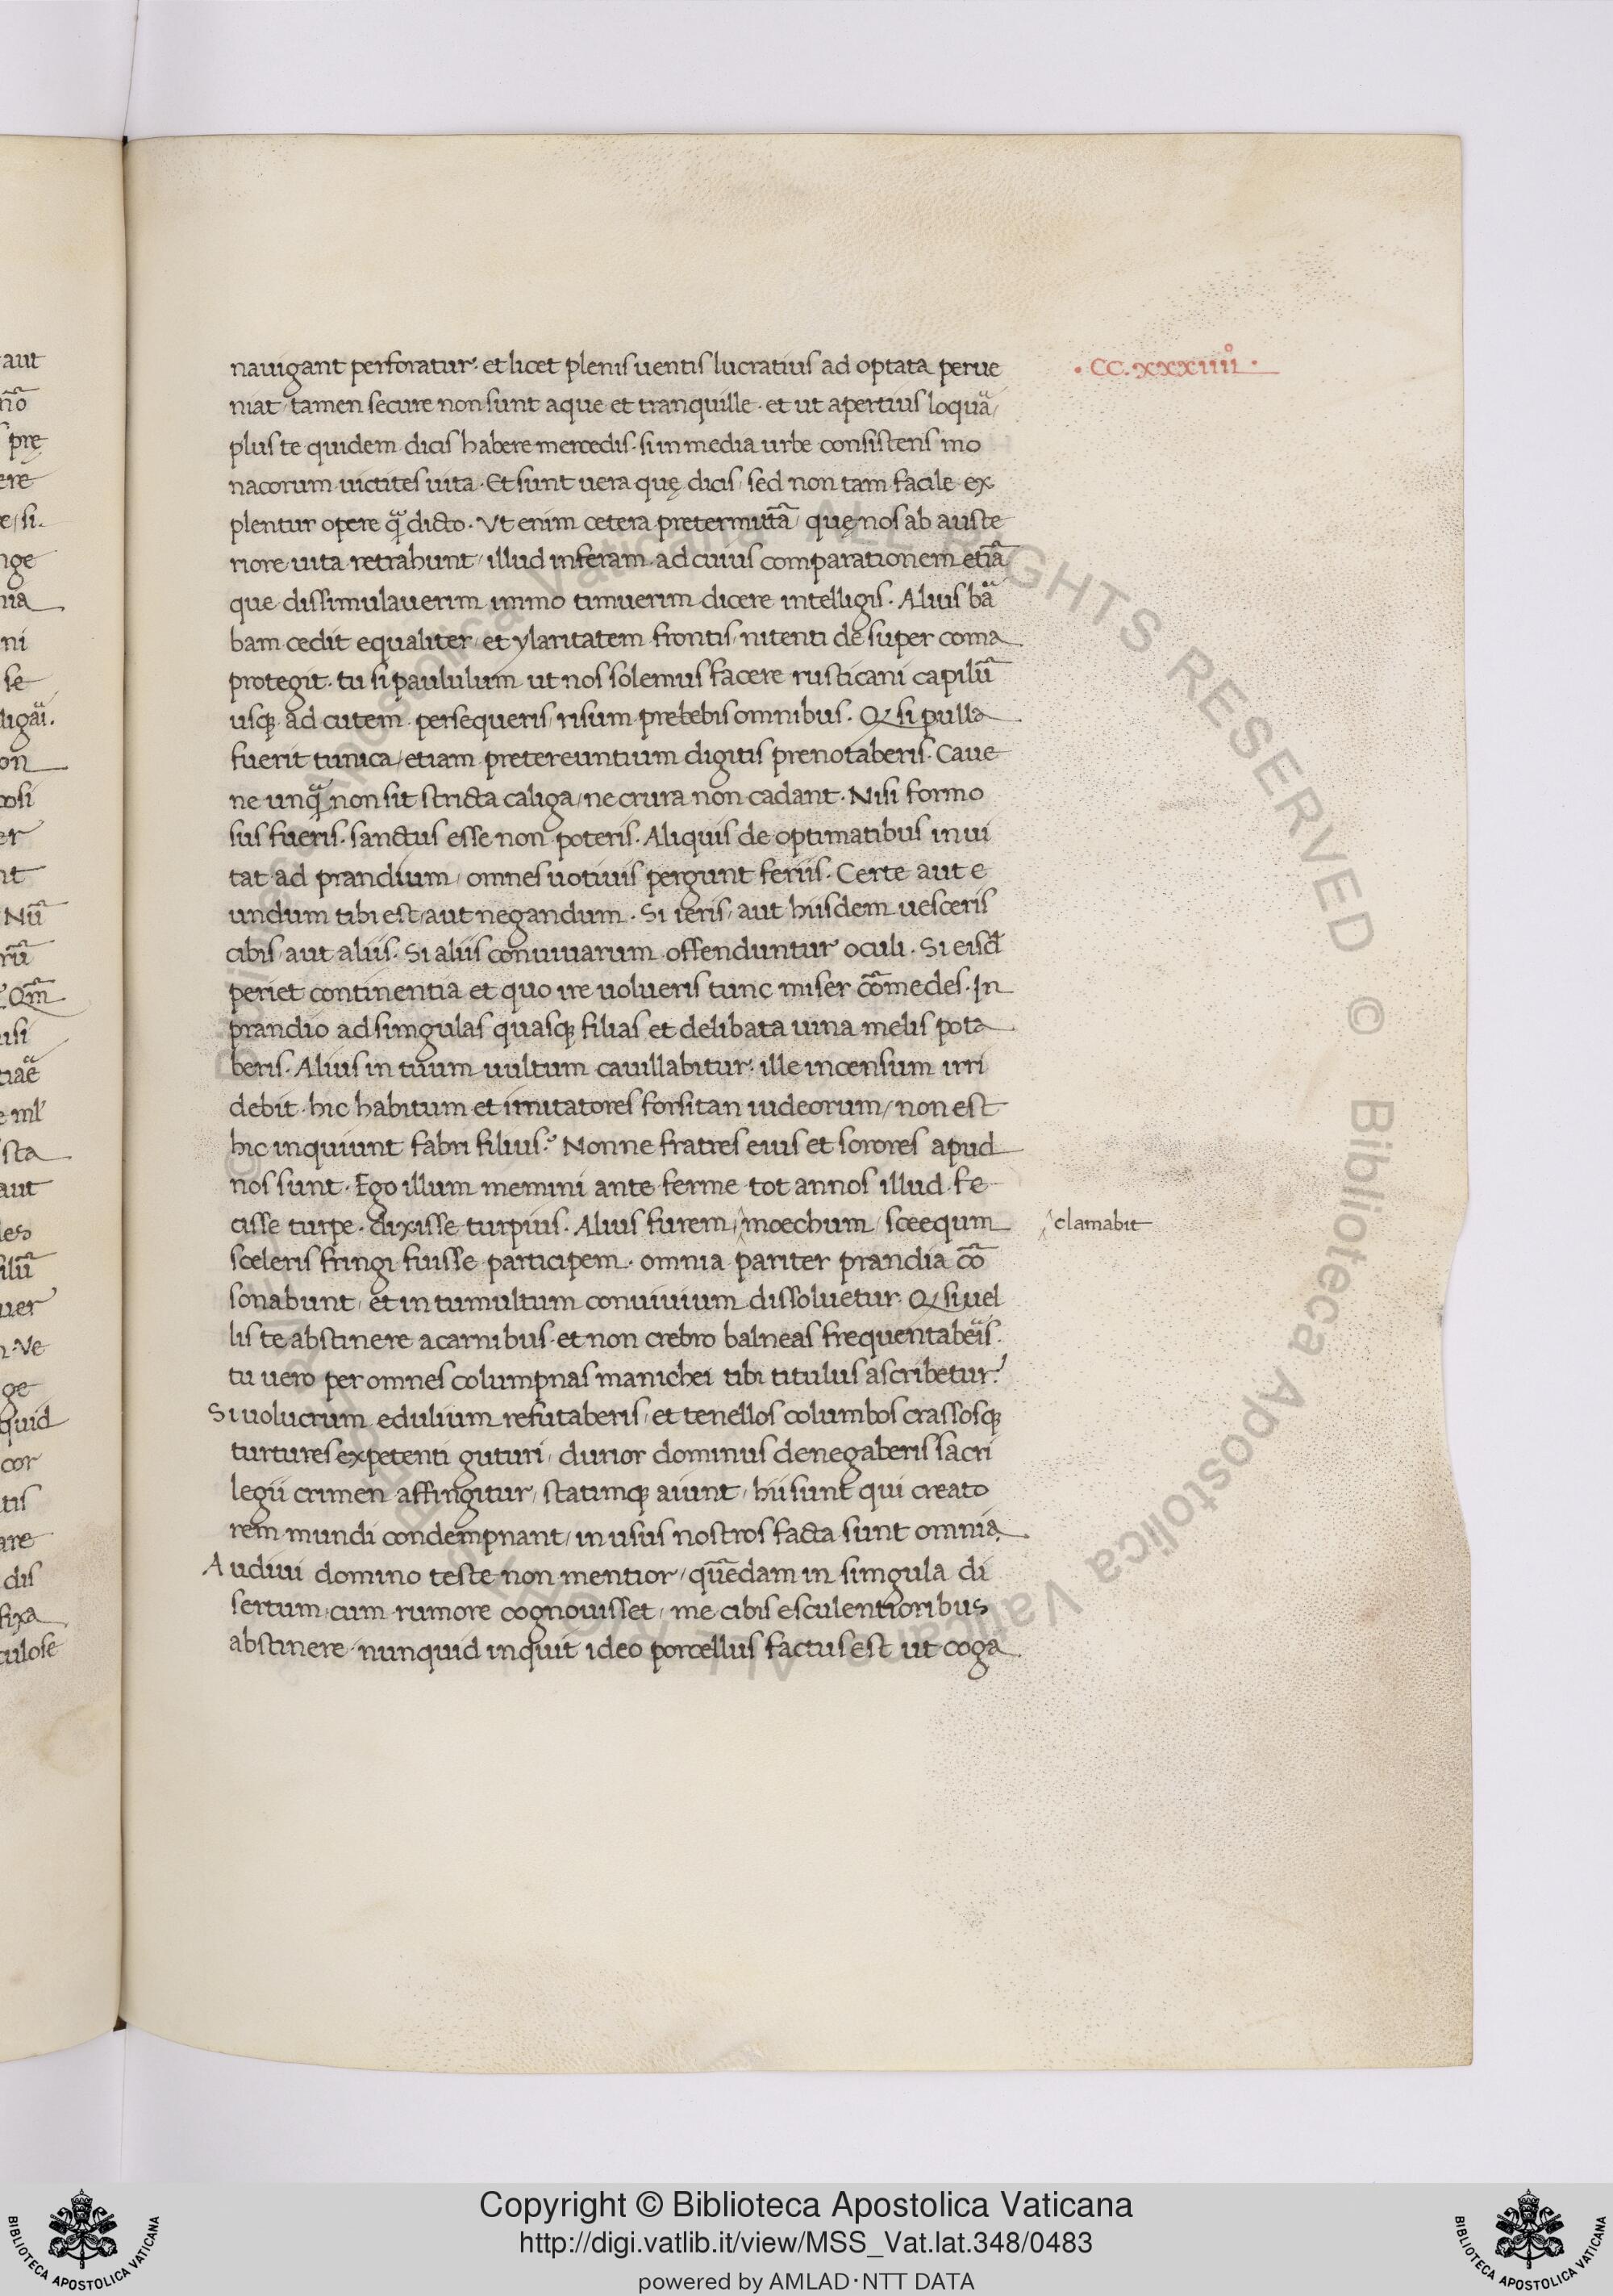 nauigant perforatur. et licet plenis uentis lucratius ad optata perue
. CC. xxxiiii° .
niat / tamen secure non sunt aque et tranquille . et ut apertius loquā /
plus te quidem dicis habere mercedis . si in media urbe consistens mo
nacorum uictites uita . Et sunt uera quę dicis / sed non tam facile ex
plentur opere q̄ dicto . Vt enim cetera pretermittā / quę nos ab auste
riore uita retrahunt / illud inferam . ad cuius comparationem etiā
que dissimulauerim immo timuerim dicere intelligis . Alius bā
bam cedit equaliter / et ylaritatem frontis / nitenti de super coma
protegit . tu si paululum ut nos solemus facere rusticani capilū
usq; ad cutem persequeris / risum prebebis omnibus . Q si pulla
fuerit tunica / etiam pretereuntium digitis prenotaberis . Caue
ne unq̄ non sit stricta caliga / ne crura non cadant . Nisi formo
sus fueris . sanctus esse non poteris . Aliquis de optimatibus inui
tat ad prandium / omnes uotiuis pergunt feriis . Certe aut e
undum tibi est / aut negandum . Si ieris / aut hiisdem uesceris
cibis / aut aliis . Si aliis conuiuarum offenduntur oculi . Si eisd
periet continentia et quo ire uolueris tunc miser cōmedes . In
prandio ad simgulas quasq; filias et delibata uina melis pota
beris . Alius in tuum uultum cauillabitur . ille incensum irri
debit . hic habitum et imitatores forsitan iudeorum / non est
hic inquiunt fabri filius ? Nonne fratres eius et sorores apud
nos sunt . Ego illum memini ante ferme tot annos illud fe
cisse turpe . dixisse turpius . Alius furem / moechum / sceequm
clamabit
sceleris fringi fuisse participem . omnia pariter prandia cō
sonabunt / et in tumultum conuiuium dissoluetur . Q si uel
lis te abstinere a carnibus . et non crebro balneas frequentabeis .
tu uero per omnes columpnas manichei tibi titulus ascribetur .
Si uolucrum edulium refutaberis / et tenellos columbos crassosq;
turtures expetenti guturi / durior dominus denegaberis sacri
legii crimen affingitur / statimq; aiunt / hii sunt qui creato
rem mundi condempnant / in usus nostros facta sunt omnia .
Audiui domino teste non mentior / quēdam in simgula di
sertum / cum rumore cognouisset / me cibis esculentioribus
abstinere . nunquid inquit ideo porcellus factus est ut coga
Copyright © Biblioteca Apostolica Vaticana
http://digi.vatlib.it/view/MSS_Vat.lat.348/0483
powered by AMLAD·NTT DATA